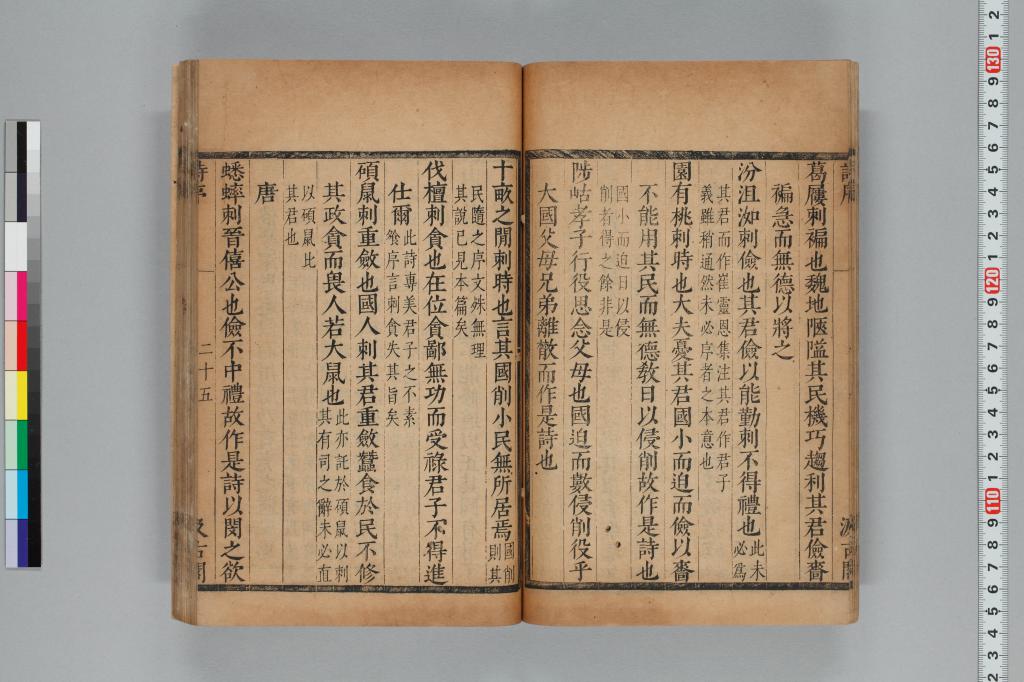 葛屨刺褊也魏地陿隘其民機巧趨利其君儉嗇
褊急而無德以將之
汾沮洳刺儉也其君儉以能勤刺不得禮也此未
必爲
其君而作崔靈恩集注其君作君子
義雖稍通然未必序者之本意也
園有桃刺時也大夫憂其君國小而迫而儉以嗇
不能用其民而無德教日以侵削故作是詩也
國小而迫日以侵
削者得之餘非是
陟岵孝子行役思念父母也國迫而數侵削役乎
大國父母兄弟離散而作是詩也
十畝之閒刺時也言其國削小民無所居焉國削
則其
民隨之序文殊無理
其說已見本篇矣
伐檀刺貪也在位貪鄙無功而受祿君子不得進
仕爾此詩專美君子之不素
飱序言刺貪失其旨矣
碩鼠刺重斂也國人刺其君重斂蠶食於民不修
其政貪而畏人若大鼠也此亦託於碩鼠以刺
其有司之辭未必直
以碩鼠比
其君也
唐
蟋蟀刺晉僖公也儉不中禮故作是詩以閔之欲
二十五